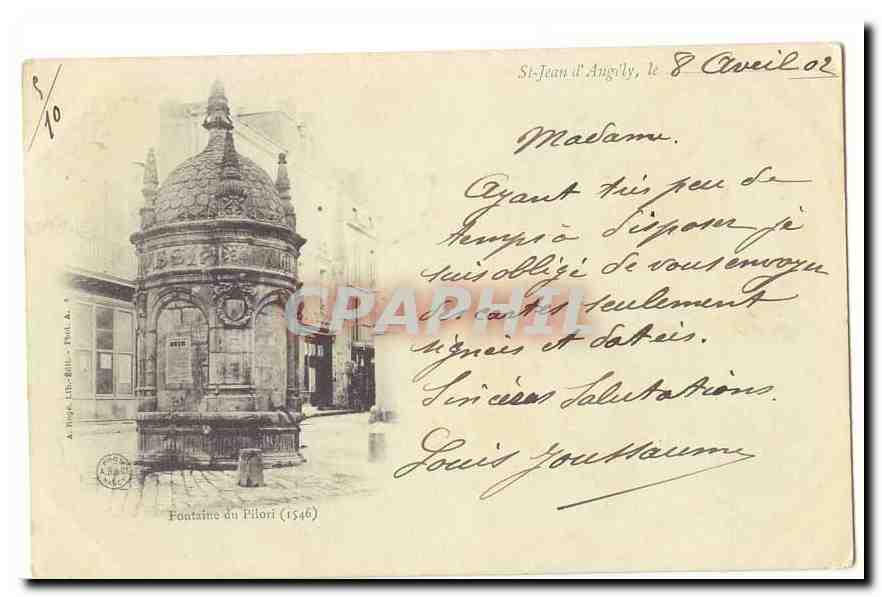 5/10
St-Jean d'Angély, le 8 Avril 02
Madame.
Ayant très peu de
temps à disposer je
suis obligé de vous envoyer
des cartes seulement
signées et datées.
Sincères Salutations.
Louis Joussaume
CPAPHIL
Fontaine du Pilori (1546)